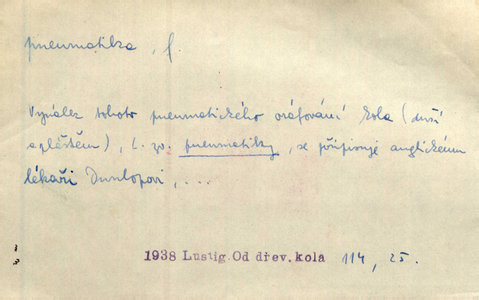 pneumatika, f.
Vynález tohoto pneumatického oráfování kola (duší
a pláštěm), t. zv. pneumatiky, se připisuje anglickému
lékaři Dunlopovi, ...
1938 Lustig. Od dřev. kola 114, 25.